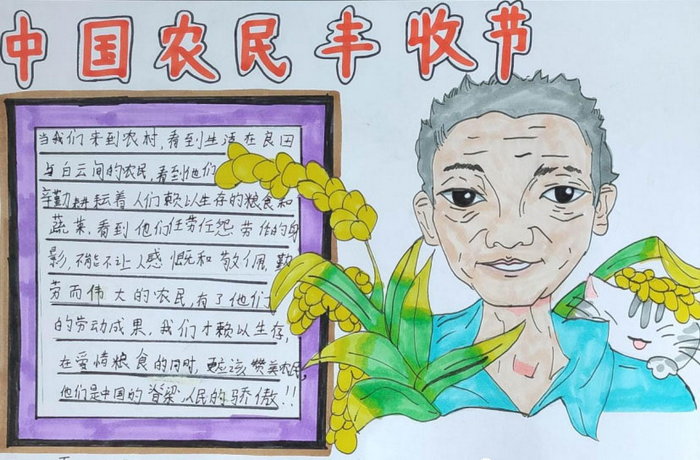 中国农民丰收节
当我们来到农村,看到生活在良田
与白云间的农民,看到他们
辛勤耕耘着人们赖以生存的粮食和
蔬菜,看到他们任劳任怨劳作的身
影,不能不让人感慨和敬佩,勤
劳而伟大的农民,有了他们
的劳动成果,我们才赖以生存,
在爱惜粮食的同时,更应该赞美农民,
他们是中国的脊梁,人民的骄傲!!